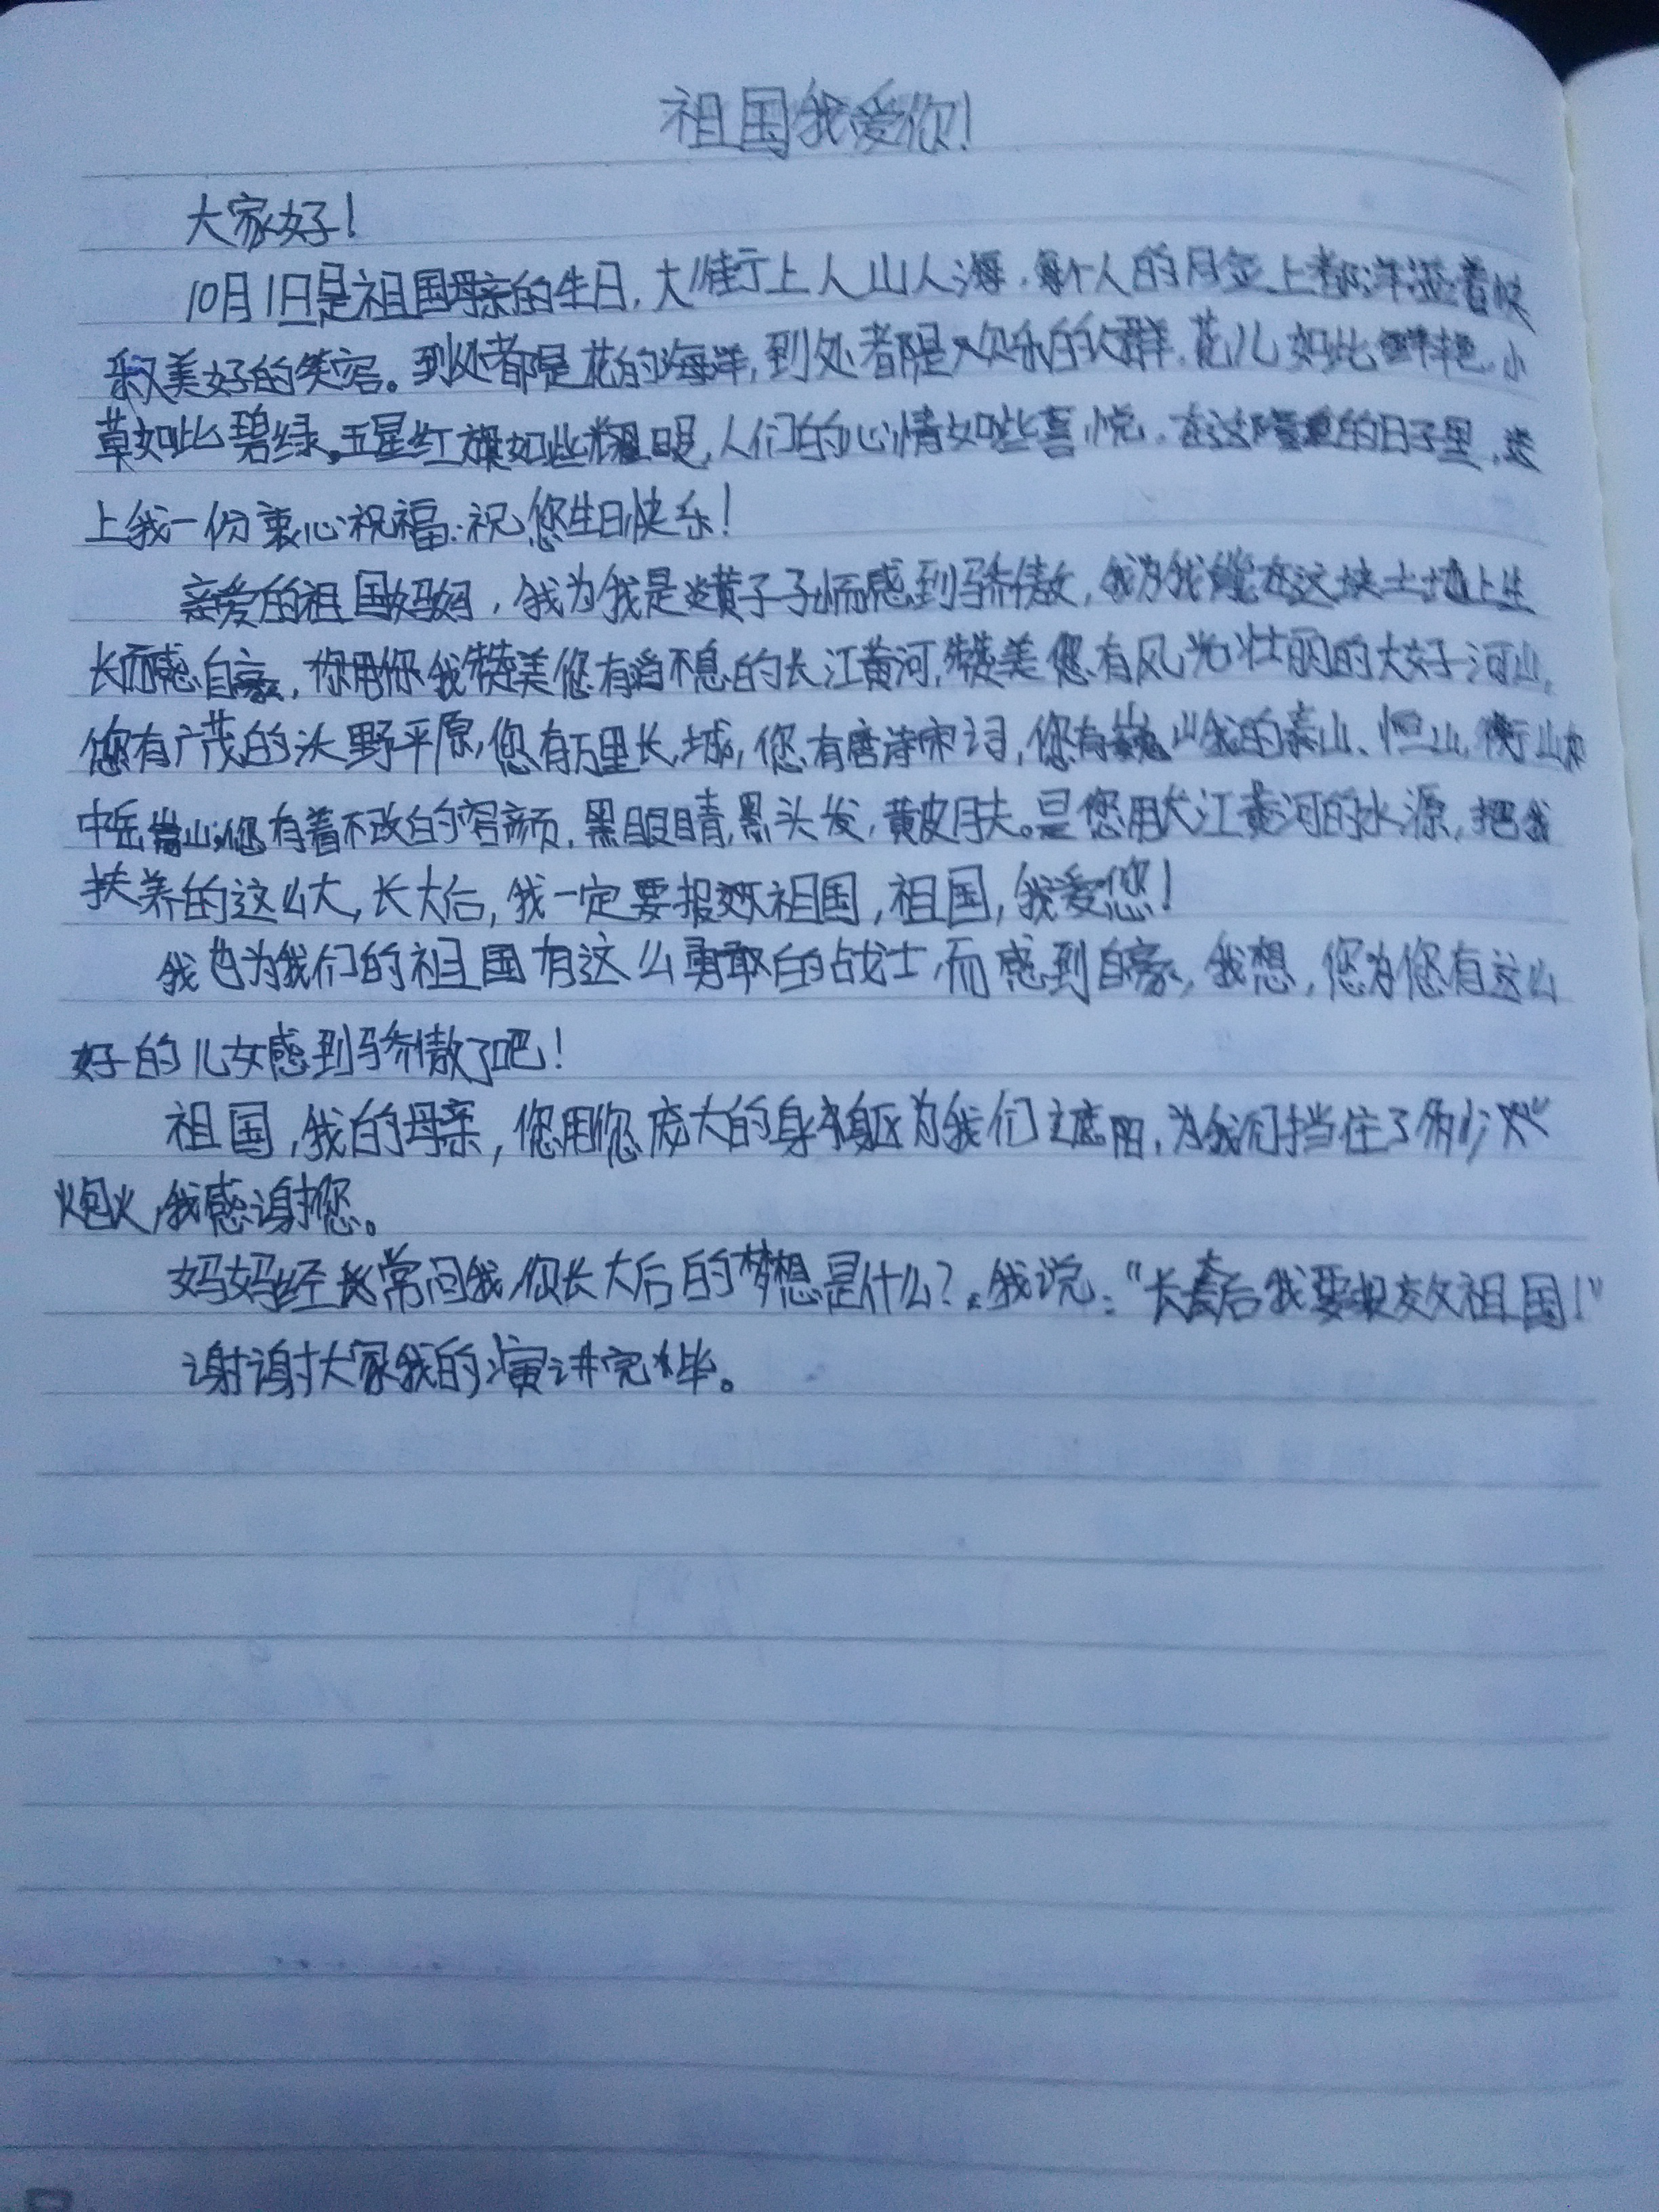 祖国我爱你!
大家好!
10月1日是祖国母亲的生日,大街上人山人海,每个人的脸上都洋溢着快
乐美好的笑容。到处都是花的海洋,到处都是欢乐的人群,花儿如此鲜艳,小
草如此碧绿,五星红旗如此耀眼,人们的心情如此喜悦,在这隆重的日子里,送
上我一份衷心祝福:祝您生日快乐!
亲爱的祖国妈妈,我为我是炎黄子子而感到骄傲,我为我能在这块土地上生
长而感自豪,你用你我赞美您有滔不息的长江黄河,赞美您有风光壮丽的大好河山,
您有广茂的沃野平原,您有万里长城,您有唐诗宋词,您有巍峨的泰山、恒山,衡山和
中岳嵩山,您有着不改的容颜,黑眼睛,黑头发,黄皮肤。是您用长江黄河的水源,把我
扶养的这么大,长大后,我一定要报效祖国,祖国,我爱您!
我也为我们的祖国有这么勇敢的战士,而感到自豪,我想,您为您有这么
好的儿女感到骄傲了吧!
祖国,我的母亲,您用您庞大的身躯为我们遮阳,为我们挡住了多少
炮火,我感谢您。
妈妈经常问我,你长大后的梦想是什么?我说:“长大后我要报效祖国!”
谢谢大家我的演讲完毕。